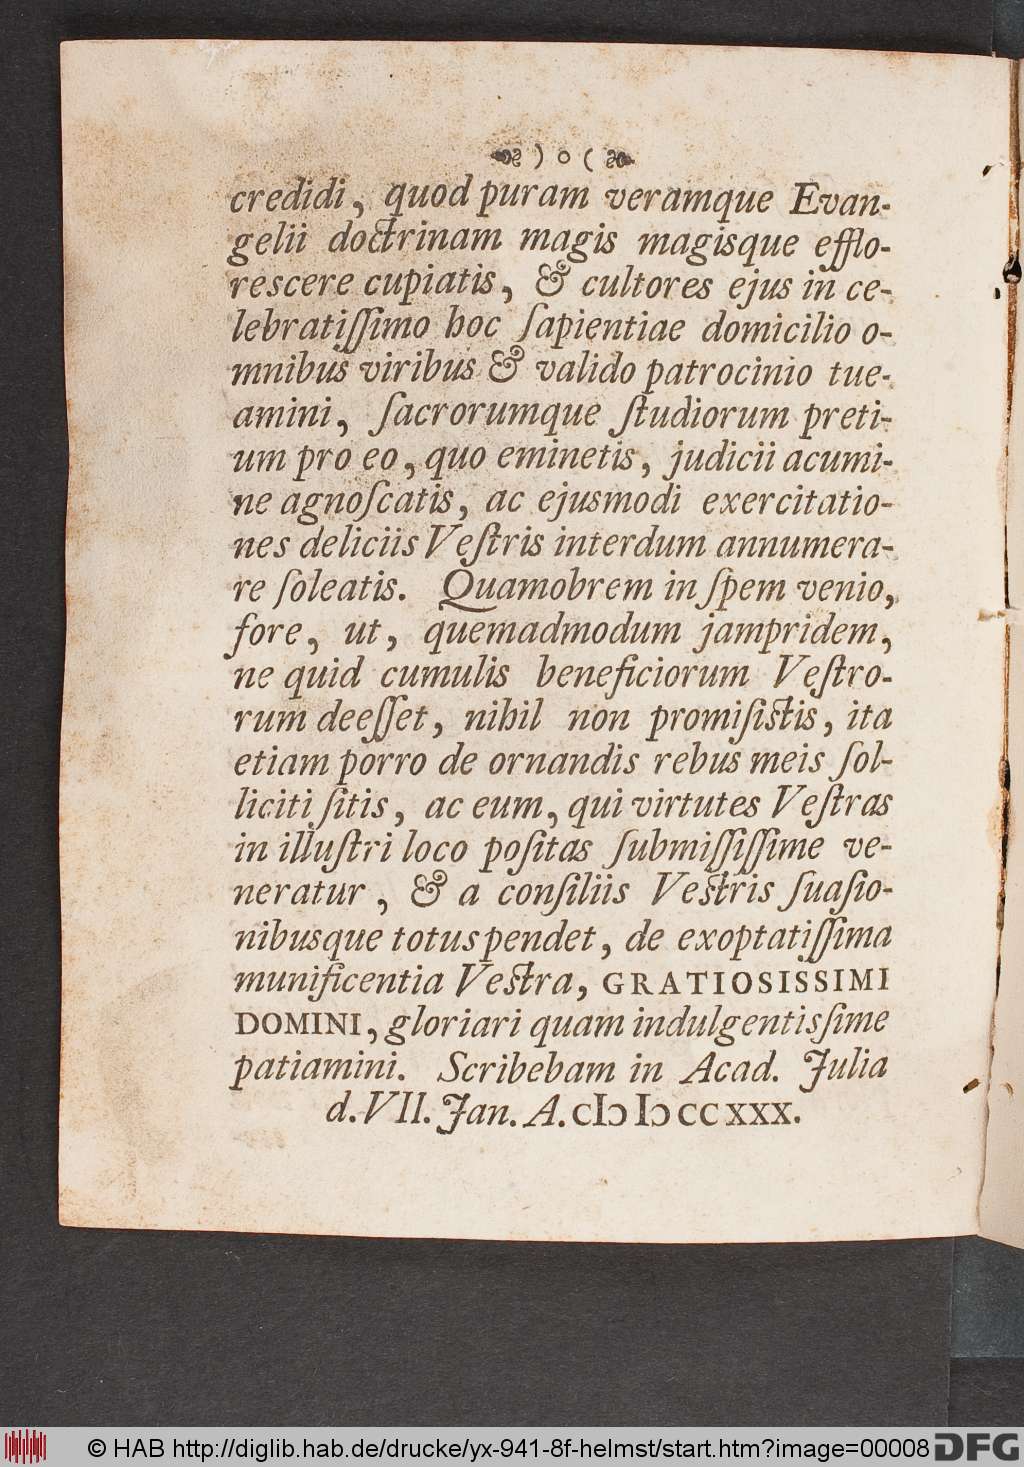 ) o (
credidi, quod puram veramque Evan-
gelii doctrinam magis magisque efflo-
rescere cupiatis, & cultores ejus in ce-
lebratiſſimo hoc ſapientiae domicilio o-
mnibus viribus & valido patrocinio tue-
amini, ſacrorumque ſtudiorum preti-
um pro eo, quo eminetis, judicii acumi-
ne agnoſcatis, ac ejusmodi exercitatio-
nes deliciis Veſtris interdum annumera-
re ſoleatis. Quamobrem in ſpem venio,
fore, ut, quemadmodum jampridem,
ne quid cumulis beneficiorum Veſtro-
rum deeſſet, nihil non promiſistis, ita
etiam porro de ornandis rebus meis ſol-
liciti ſitis, ac eum, qui virtutes Veſtras
in illuſtri loco poſitas ſubmiſſiſſime ve-
neratur, & a conſiliis Vestris ſuaſio-
nibusque totus pendet, de exoptatiſſima
munificentia Vestra, GRATIOSISSIMI
DOMINI, gloriari quam indulgentisſime
patiamini. Scribebam in Acad. Julia
d. VII. Jan. A. cIↄ Iↄ CC XXX.
© HAB http://diglib.hab.de/drucke/yx-941-8f-helmst/start.htm?image=00008 DFG